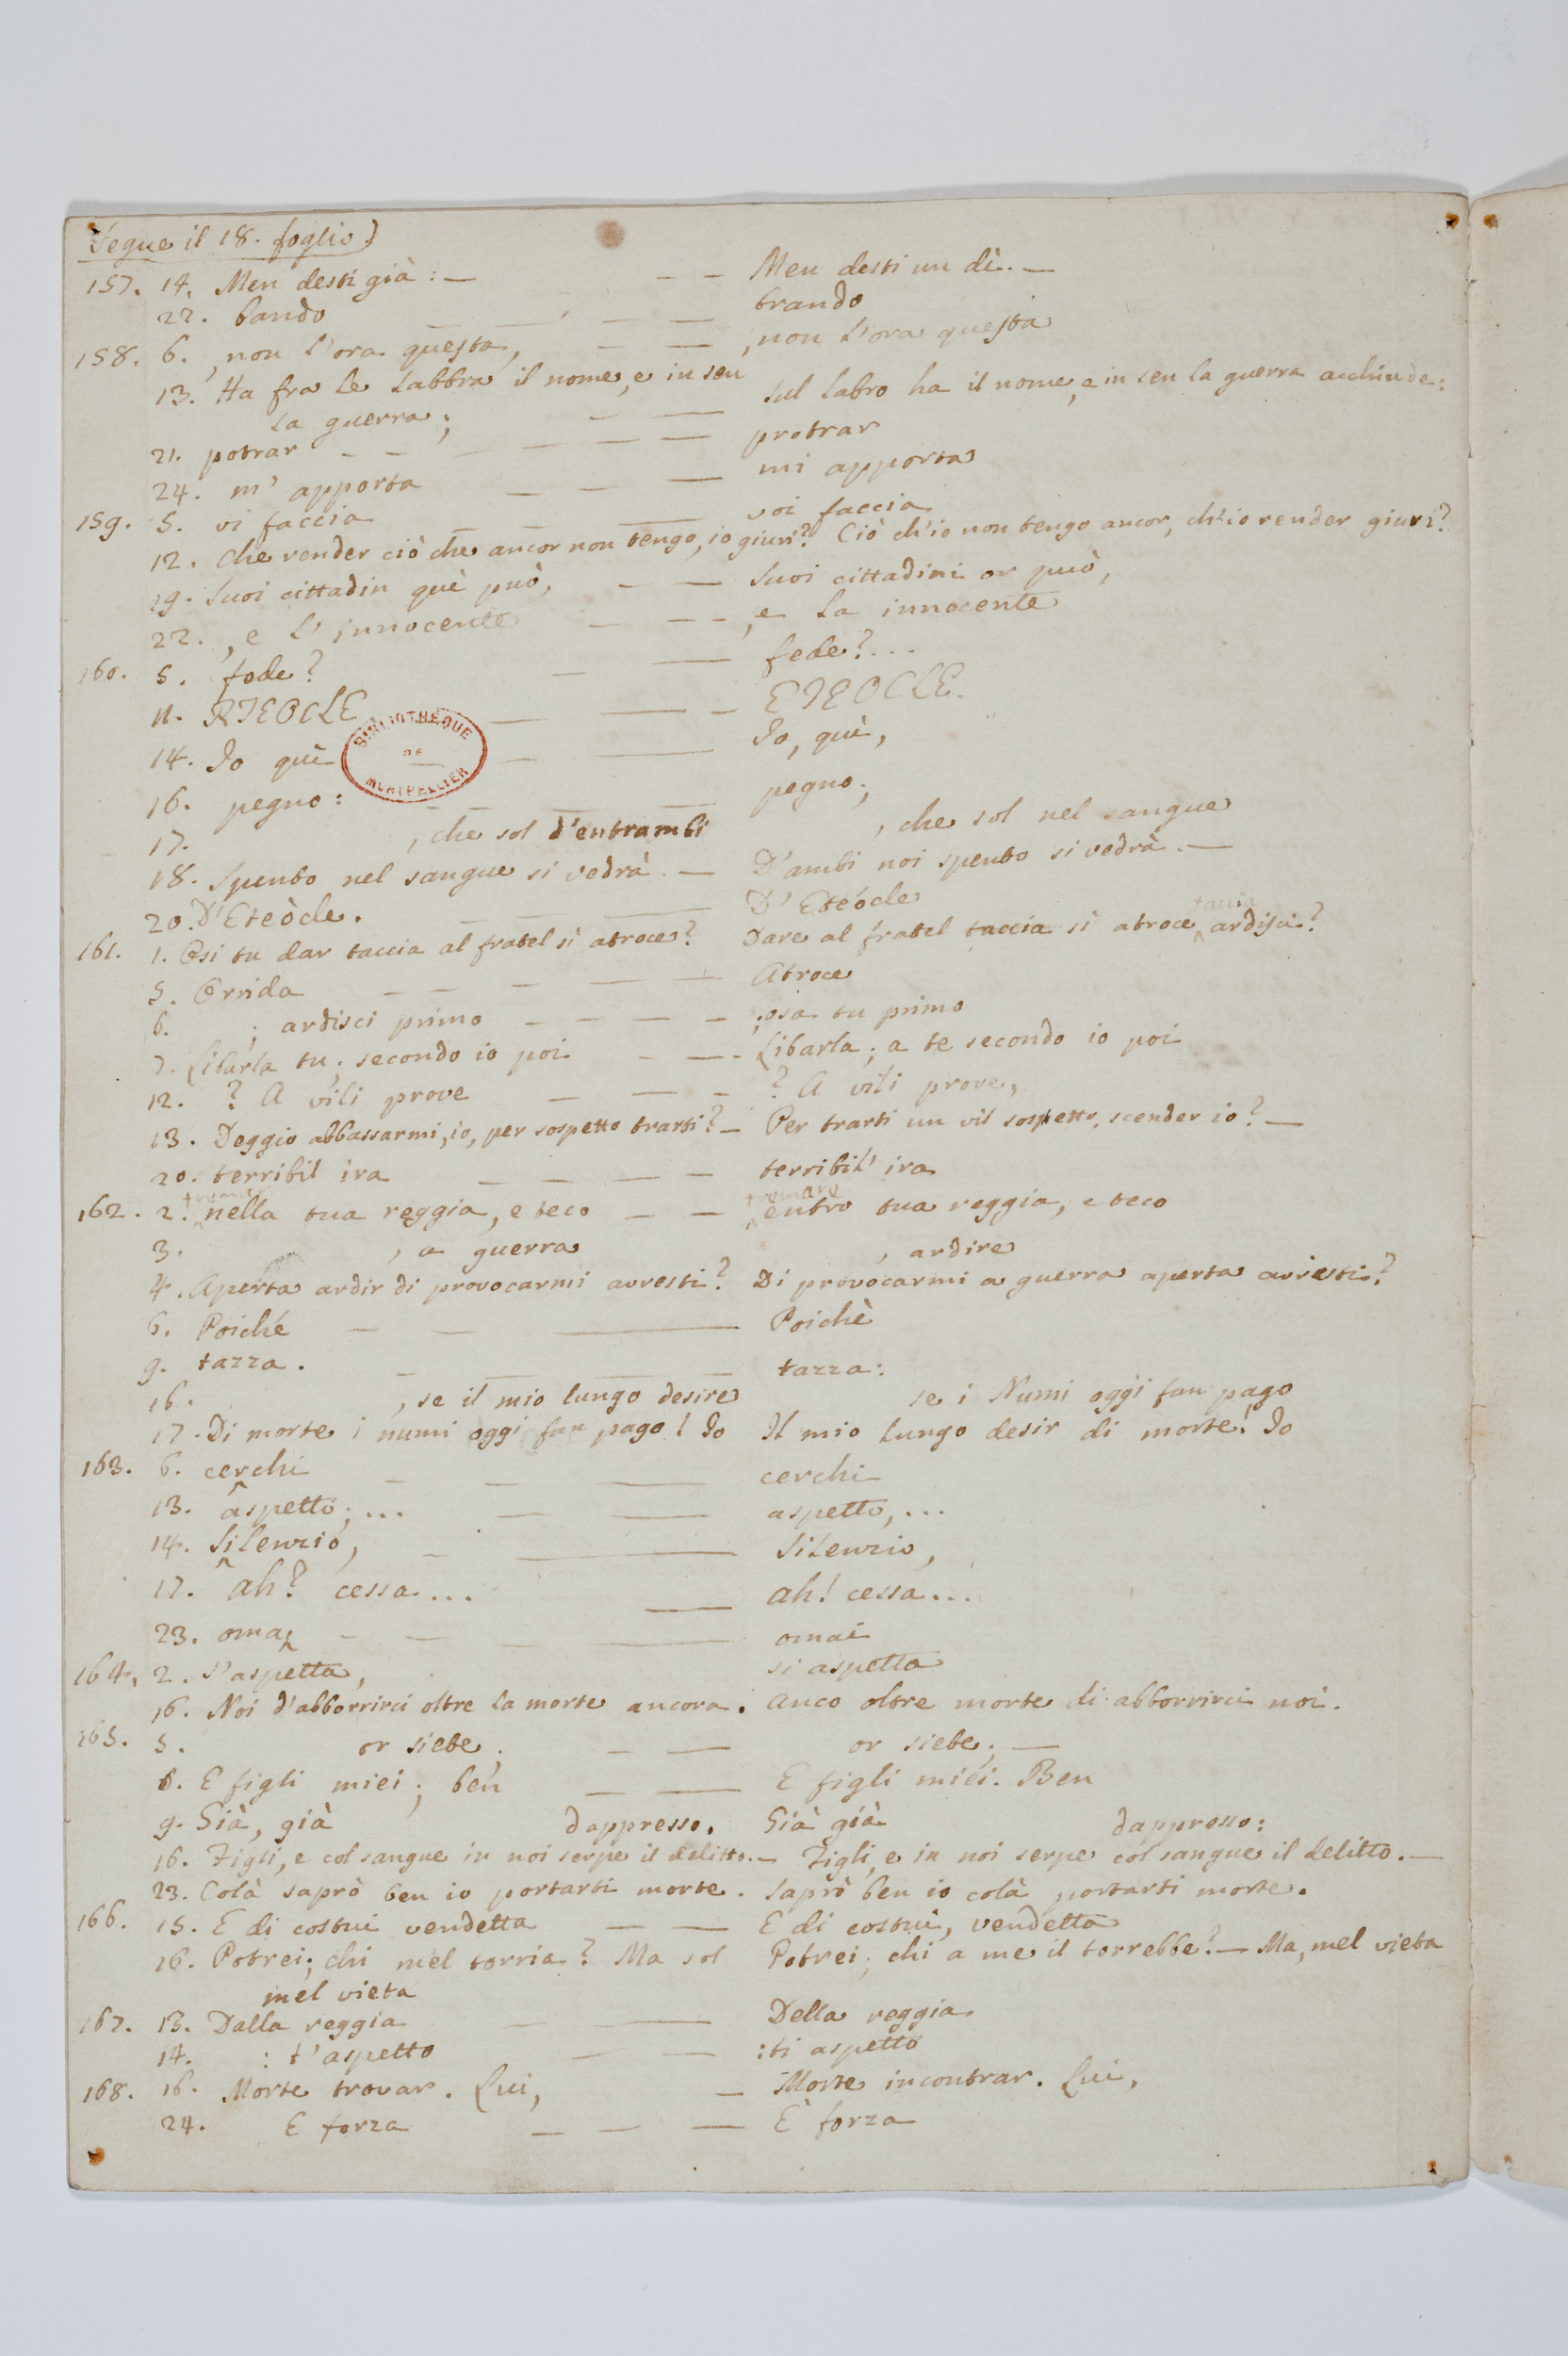 Segue il 18. foglio)
157. 14. Men desti già: — — — Men desti un dì. —
22. bando — — — — brando
158. 6. , non l'ora questa, — — , non l'ora questa
13. Ha fra le labbra il nome, e in sen Sul labro ha il nome, e in sen la guerra acchiude:
la guerra; — —
21. potrar — — — — — — protrar
24. m' apporta — — — mi apporta
159. 5. vi faccia — — — voi faccia
12. Che render ciò che ancor non tengo, io giuri? Ciò ch'io non tengo ancor, ch'io render giuri?
19. Suoi cittadin quì può, — — Suoi cittadini or può,
22. , e l' innocente — — — , e la innocente
160. 5. fode? — — fede?...
11. RTEOCLE — — — ETEOCLE.
14. Io quì — — — Io, quì,
BIBLIOTHEQUE DE MONTPELLIER
16. pegno: — — — — pegno;
17. , che sol d'entrambi , che sol nel sangue
18. Spento nel sangue si vedrà. — D'ambi noi spento si vedrà. —
20. D'Eteòcle. — — — D' Eteócle
taccia
161. 1. Osi tu dar taccia al fratel sì atroce? Dare al fratel taccia sì atroce ^ ardisci?
5. Orrida — — — — — Atroce
6. ; ardisci primo — — — — ; osa tu primo
7. Libarla tu; secondo io poi — — - Libarla; a te secondo io poi
12. ? A vili prove — — — ? A vili prove,
13. Deggio abbassarmi, io, per sospetto trarti? — Per trarti un vil sospetto, scender io? —
20. terribil ira — — — — terribil' ira
tremare
162. 2. ! ^ nella tua reggia, e teco — — ^ entro tua reggia, e teco
3. , a guerra , ardire
4. Aperta ardir di provocarmi avresti? Di provocarmi a guerra aperta avresti?
6. Poiché — — — Poichè
9. tazza. — — — — tazza:
16. , se il mio lungo desire se i Numi oggi fan pago
17. Di morte i numi oggi fan pago! Io Il mio lungo desir di morte! Io
163. 6. cerchi — — — cerchi
13. ^ aspetto;... — — aspetto,...
14. Silenzio, — — Silenzio,
17. ^ ah? cessa... — ah! cessa...
23. omai ^ — — — — omai
164. 2. S'aspetta, si aspetta
16. Noi d'abborrirci oltre la morte ancora. Anco oltre morte di abborrirci noi.
165. 5. or siete; — — or siete; —
6. E figli miei; ben — — E figli miei. Ben
9. Già, già dappresso. Già già dappresso:
16. Figli, e col sangue in noi serpe il delitto. — Figli, e in noi serpe col sangue il delitto. —
23. Colà saprò ben io portarti morte. Saprò ben io colà portarti morte.
166. 15. E di costui vendetta — — E di costui, vendetta
16. Potrei; chi mel torria? Ma sol Potrei; chi a me il torrebbe? — Ma, mel vieta
mel vieta
167. 13. Dalla reggia — — Della reggia
14. : t'aspetto — — : ti aspetto
168. 16. Morte trovar. Lui, — Morte incontrar. Lui,
24. E forza — — — È forza